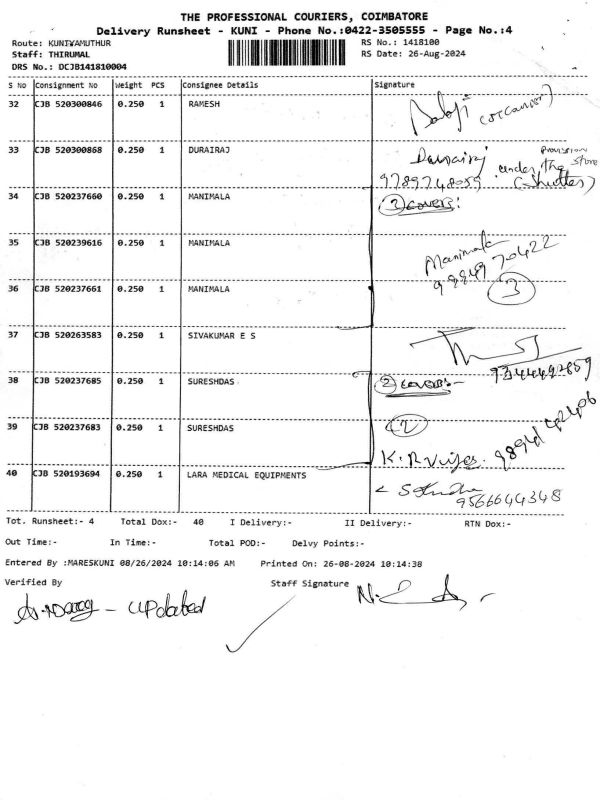 THE PROFESSIONAL COURIERS, COIMBATORE
Delivery Runsheet - KUNI - Phone No.:0422-3505555 - Page No.:4
Route: KUNIYAMUTHUR RS No.: 1418100
Staff: THIRUMAL RS Date: 26-Aug-2024
DRS No.: DCJB141810004
S No Consignment No Weight PCS Consignee Details Signature
32 CJB 520300846 0.250 1 RAMESH
Balaji
33 CJB 520300868 0.250 1 DURAIRAJ
Durairaj under the provision store
9789748059 (Shutter)
34 CJB 520237660 0.250 1 MANIMALA
3 covers:
35 CJB 520239616 0.250 1 MANIMALA
Manimala
9984970422
36 CJB 520237661 0.250 1 MANIMALA
3
37 CJB 520263583 0.250 1 SIVAKUMAR E S
38 CJB 520237685 0.250 1 SURESHDAS
2 covers:-
39 CJB 520237683 0.250 1 SURESHDAS
2
K.R Vijay.
40 CJB 520193694 0.250 1 LARA MEDICAL EQUIPMENTS
9566644348
Tot. Runsheet:- 4 Total Dox:- 40 I Delivery:- II Delivery:- RTN Dox:-
Out Time:- In Time:- Total POD:- Delvy Points:-
Entered By :MARESKUNI 08/26/2024 10:14:06 AM Printed On: 26-08-2024 10:14:38
Verified By Staff Signature
- updated